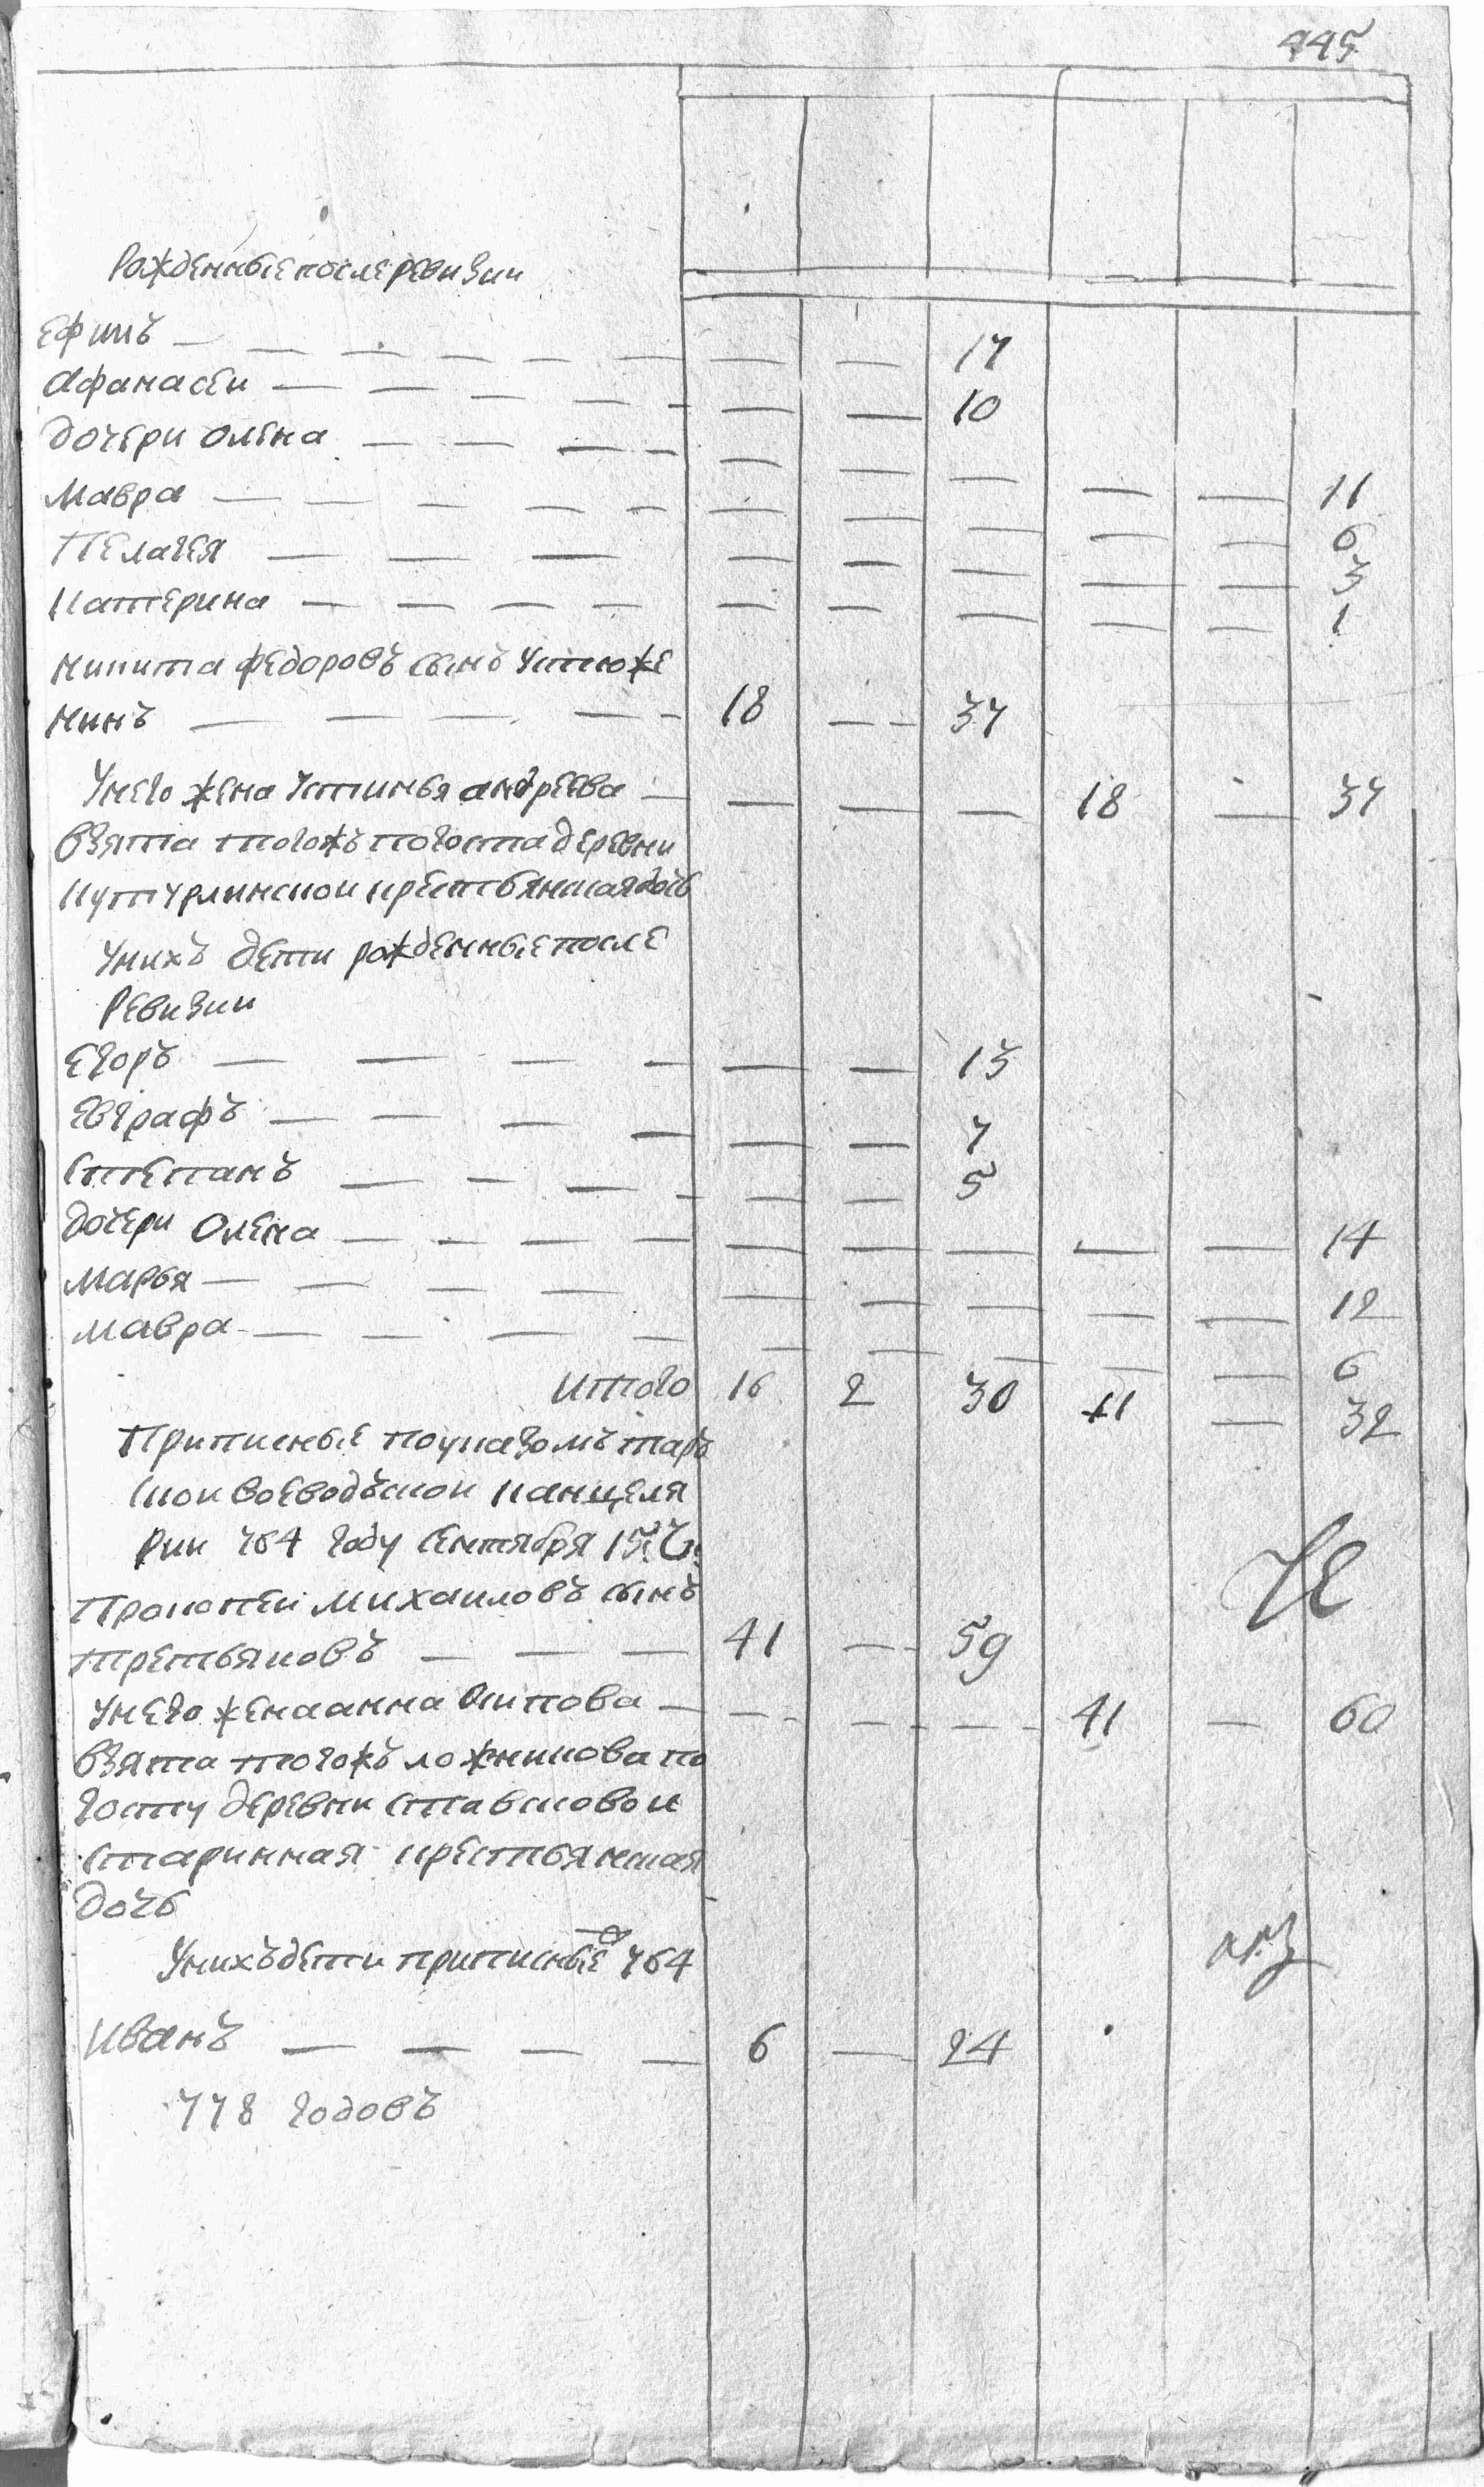 445
Рожденные после ревизии
Ефимъ — — — — — — — — 17
Афанасеи — — — — — — — 10
дочери Олена — — — — — — — — — 11
Мавра — — — — — — — — — — 6
Пелагея — — — — — — — — 3
Катерина — — — — — — — — — 1
Никита Федоровъ сынъ Устюже
нинъ — — — — 18 — 37
У него жена Устинья Андреева — — — — 18 — 37
взята тогожъ погоста деревни
Кутурлинскои крестьянская дочь
У нихъ дети рожденные после
Ревизии
Егоръ — — — — — — 13
Евграфъ — — — — — — 7
Степанъ — — — — — — 5
дочери Олена — — — — — — — — — 14
Марья — — — — — — — — — 12
Мавра — — — — — — — — — 6
Итого 16 2 30 11 — 32
Приписные по указомъ таръ
скои воеводскои канцеля
рии 764 году Сентября 15 г
Прокопеи Михаиловъ сынъ
Третьяковъ — — — 41 — 59
У него жена Анна Осипова — — — — 41 — 60
взята тогожъ Ложникова по
госту деревни Ставсковои
старинная крестьянская
дочь
У нихъ дети приписные 764
Иванъ — — — — 6 — 24
778 годовъ